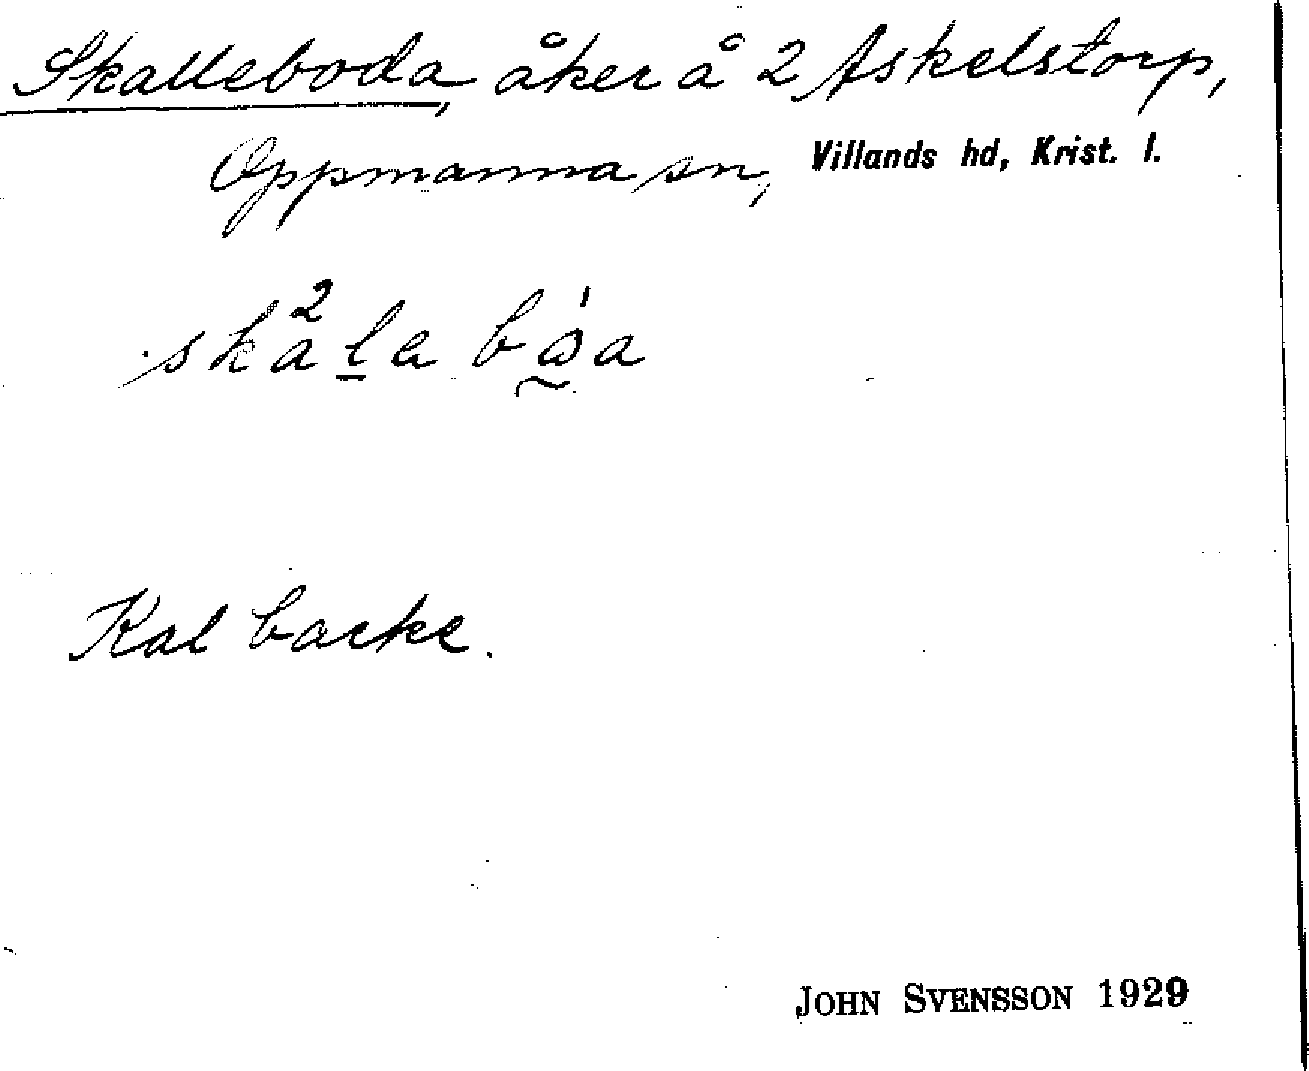 Skalleboda, åker å 2 Askelstorp,
Oppmanna sn, Villands hd, Krist. l.
Kal backe.
JOHN SVENSSON 1929